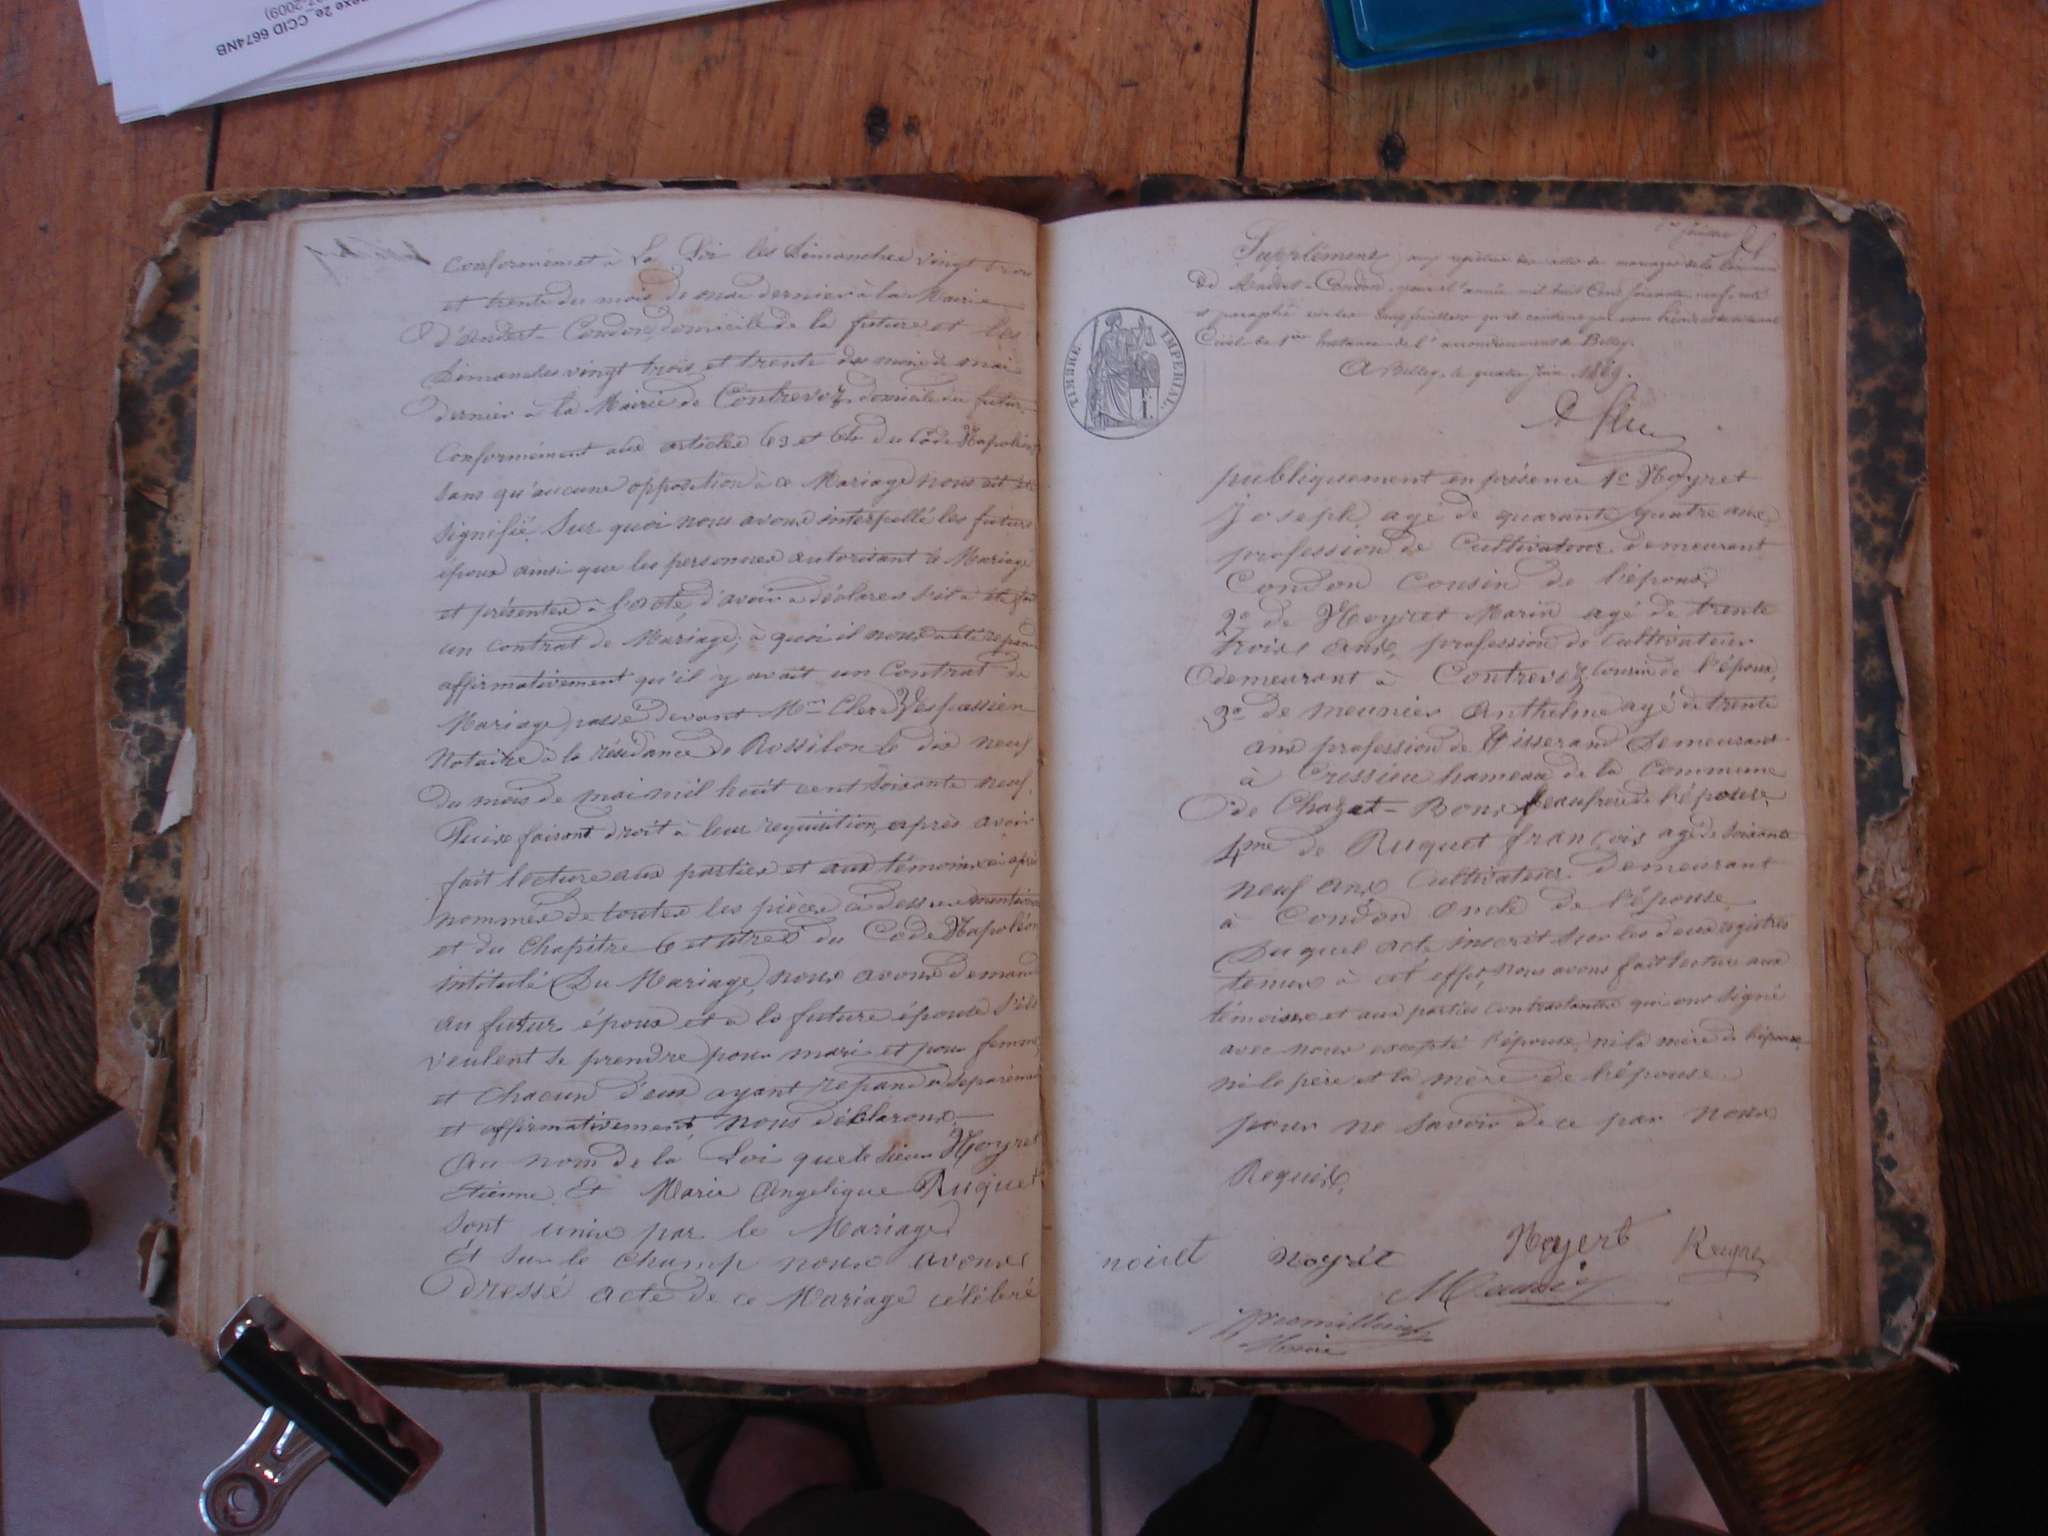 exe 2e_CCID 6674NB
-2009)
conformément à la Loi les dimanches vingt trois
et trente du mois de mai dernier à la Mairie
d'andert-Condon, domicile de la future et les
dimanches vingt trois et trente du mois de mai
dernier à la Mairie de Contrevoz domicile du futur,
conformément aux articles 63 et 64 du Code Napoléon
sans qu'aucune opposition à ce Mariage nous ait été
signifié Sur quoi nous avons interpellé les futurs
époux ainsi que les personnes autorisant le Mariage
et présentes à l'acte, d'avoir a déclarer s'il a été fait
un contrat de Mariage; à quoi il nous a été repondu
affirmativement qu'il y avait un Contrat de
Mariage passé devant Mre Clerd Vespassien
Notaire à la résidance de Rossilon le dix neuf
du mois de mai mil huit cent soixante neuf.
Puis faisant droit à leur requisition, après avoir
fait lecture aux parties et aux témoins ci après
nommes de toutes les pièces ci dessus mentionné
et du Chapitre 6 et titre 5 du Code Napoléon
intitulé Du Mariage, nous avons demandé
au futur époux et a la future épouse s'ils
veulent se prendre pour mari et pour femme
et chacun d'eux ayant repondu séparément
et affirmativement, nous déclarons
au nom de la Loi que le sieur Noyret
Etienne Et Marie Angelique Ruquet
sont unis par le Mariage
Et sur le champ nous avons
dressé acte de ce Mariage célébré
Supplément aux registres des actes de mariages de la Commune
de Andert-Condon, pour l'année mil huit Cent soixante neuf, coté
et paraphé
Civil de 1ère Instance de l'arrondissement de Belley.
A Belley, le quatre juin 1869.
TIMBRE IMPERIAL
publiquement en présence 1e Noyret
joseph agé de quarante quatre ans,
profession de Cultivateur demeurant
Condon Cousin de l'époux
2e de Noyret Marin agé de trente
trois ans, profession de Cultivateur
demeurant à Contrevoz Cousin de l'époux,
3e de meunier Anthelme agé de trente
ans profession de Tisserand demeurant
à Cressieu hameau de la Commune
de Chazet-Bons beaufrère de l'épouse
4me de Ruquet françois agé de soixante
neuf ans Cultivateur demeurant
à Condon oncle de l'épouse
Du quel acte inscrit sur les deux registres
tenus à cet effet, nous avons fait lecture aux
témoins et aux parties contractantes qui ont signé
avec nous excepté l'épouse, ni la mère de l'époux,
ni le père et la mère de l'épouse
pour ne savoir de ce par nous
Requis.
noiret Noyrét Noyert Ruque
Meunier
Maire